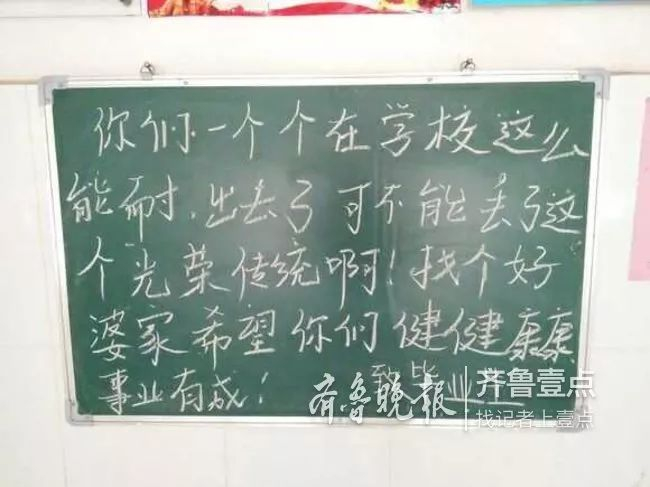 你们一个个在学校这么
能耐,出去了可不能丢了这
个光荣传统啊!找个好
婆家希望你们健健康康
事业有成!
致毕业生
齐鲁晚报
齐鲁壹点
找记者上壹点